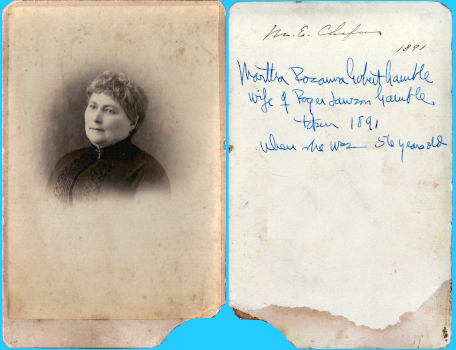 M. E.
1891
Martha Rozanna Gamble
wife of Roger Lawson Gamble.
taken 1891
when she was 56 years old